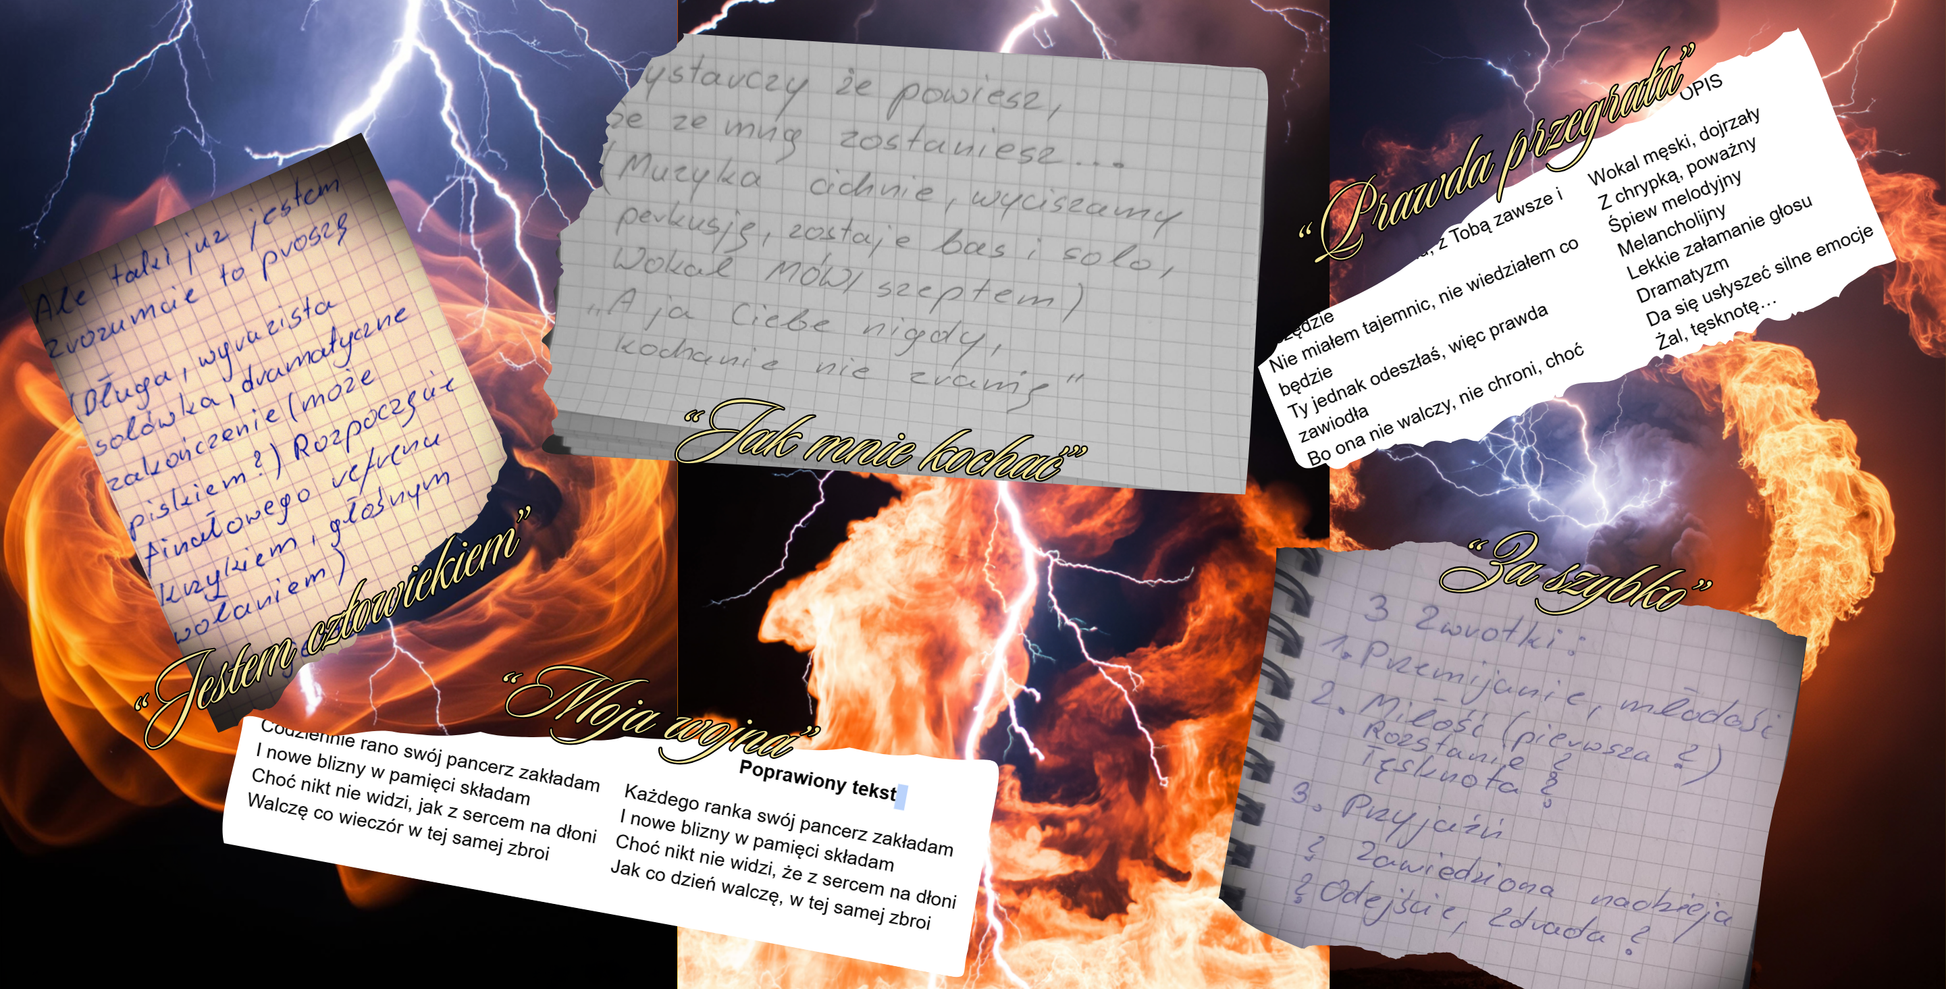 Ale taki już jestem
zrozumcie to proszę
(Długa, wyrazista
solówka, dramatyczne
zakończenie (może
piskiem?) Rozpoczęcie
finałowego refrenu
krzykiem, głośnym
wołaniem)
“Jestem człowiekiem”
ystarczy że powiesz,
że ze mną zostaniesz...
(Muzyka cichnie, wyciszamy
perkusję, zostaje bas i solo,
Wokal MÓWI szeptem)
„A ja Ciebie nigdy,
kochanie nie zranię”
“Jak mnie kochać”
“Prawda przegrała”
z Tobą zawsze i
będzie
Nie miałem tajemnic, nie wiedziałem co
będzie
Ty jednak odeszłaś, więc prawda
zawiodła
Bo ona nie walczy, nie chroni, choć
OPIS
Wokal męski, dojrzały
Z chrypką, poważny
Śpiew melodyjny
Melancholijny
Lekkie załamanie głosu
Dramatyzm
Da się usłyszeć silne emocje
Żal, tęsknotę...
“Moja wojna”
Codziennie rano swój pancerz zakładam
I nowe blizny w pamięci składam
Choć nikt nie widzi, jak z sercem na dłoni
Walczę co wieczór w tej samej zbroi
Poprawiony tekst
Każdego ranka swój pancerz zakładam
I nowe blizny w pamięci składam
Choć nikt nie widzi, że z sercem na dłoni
Jak co dzień walczę, w tej samej zbroi
“Za szybko”
3 Zwrotki:
1. Przemijanie, młodość
2. Miłość (pierwsza ?)
Rozstanie ?
Tęsknota ?
3. Przyjaźń
? Zawiedziona nadzieja
? Odejście, Zdrada ?